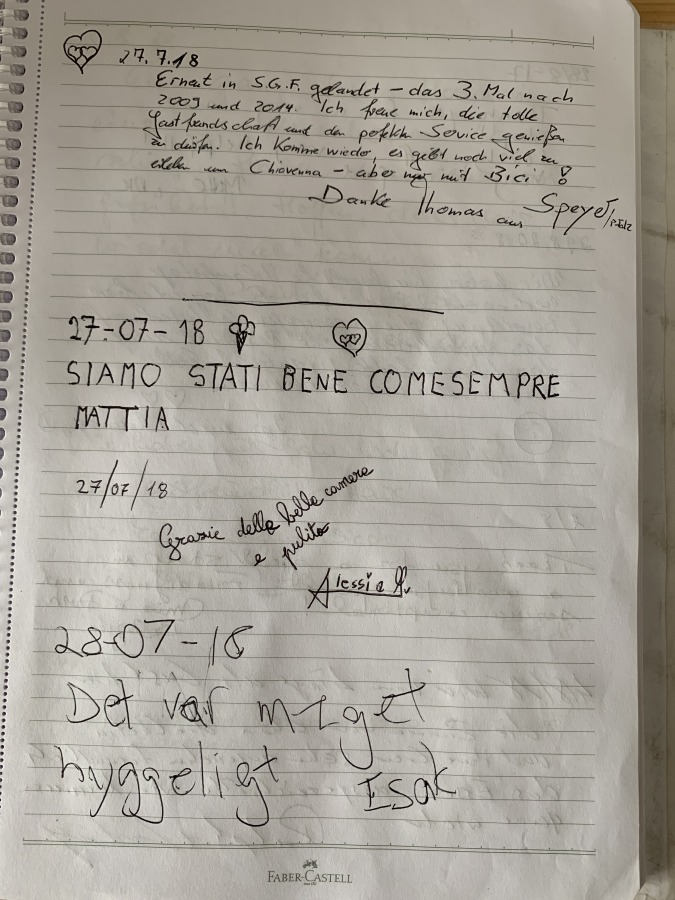 27.7.18
Erneut in S.G.F. gelandet – das 3. Mal nach
2009 und 2014. Ich freue mich, die tolle
Gastfreundschaft und den perfekten Service genießen
zu dürfen. Ich komme wieder, es gibt noch viel zu
erleben um Chiavenna – aber nur mit Bici!
Danke Thomas aus Speyer/Pfalz
27-07-18
SIAMO STATI BENE COME SEMPRE
MATTIA
27/07/18
Grazie della bella camera
e pulita
Alessia R.
28-07-18
Det var meget
hyggeligt Isak
FABER-CASTELL